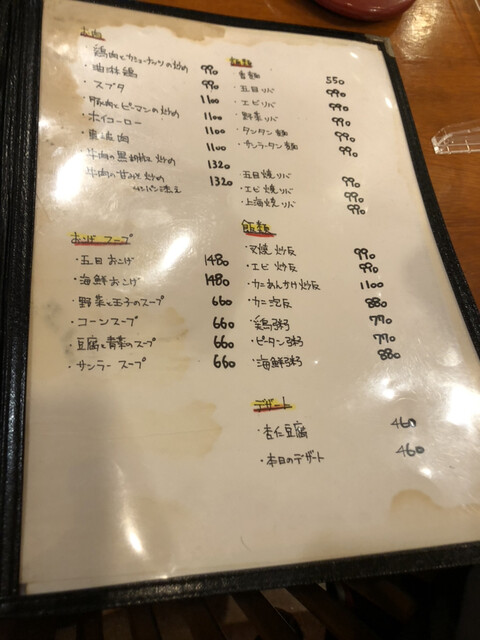 お肉
・鶏肉とカシューナッツの炒め 990
・油淋鶏 990
・スブタ 1100
・豚肉とピーマンの炒め 1100
・ホイコーロー 1100
・黒酢肉 1100
・牛肉の黒胡椒炒め 1320
・牛肉の甘みそ炒め 1320
おこげ スープ
・五目おこげ 1480
・海鮮おこげ 1480
・野菜と玉子のスープ 660
・コーンスープ 660
・豆腐と青菜のスープ 660
・サンラー スープ 660
・香麺 550
・五目ソバ 990
・エビソバ 990
・野菜ソバ 990
・タンタン麺 990
・サンラータン麺 990
・五目焼ソバ 990
・エビ焼ソバ 990
・上海焼ソバ 990
飯類
・叉焼炒反 990
・エビ炒反 990
・カニあんかけ炒反 1100
・カニ泡反 880
・鶏粥 770
・ピータン粥 770
・海鮮粥 880
デザート
・杏仁豆腐 460
・本日のデザート 460